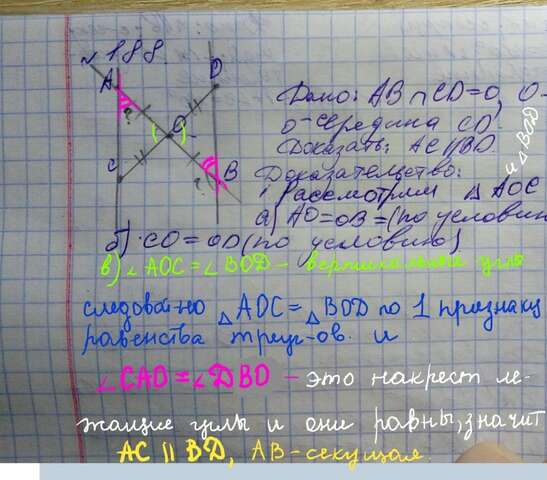 №188.
A
D
O
C
B
Дано: AB ∩ CD = O, O-
O-середина CD.
Доказать: AC || BD
Доказательство:
1 Рассмотрим △ AOC и △ BOD
а) AO = OB = (по условию
б) CO = OD (по условию)
в) ∠AOC = ∠BOD - вертикальные углы
следоват-но △AOC = △BOD по 1 признаку
равенства треуг-ов. и
∠CAO = ∠DBO - это накрест ле-
жащие углы и они равны, значит
AC || BD, AB-секущая.